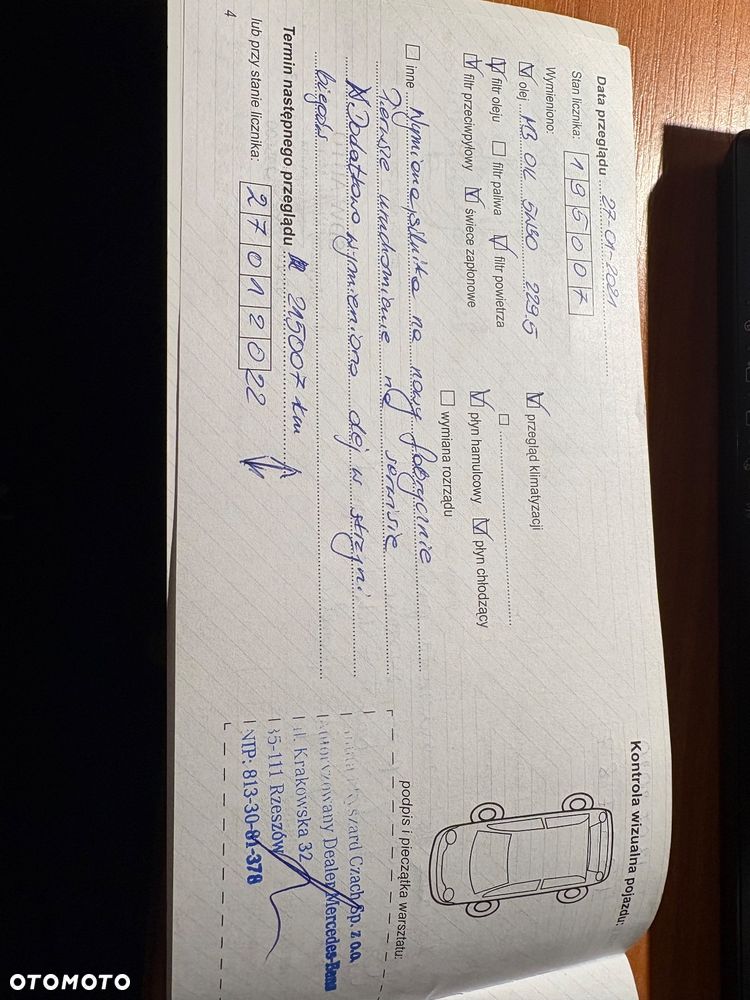 Data przeglądu 27-01-2021
Stan licznika: 195007
Wymieniono:
olej MB OIL 5W30 229.5
filtr oleju filtr paliwa filtr powietrza
filtr przeciwpyłowy świece zapłonowe
przegląd klimatyzacji
płyn hamulcowy płyn chłodzący
wymiana rozrządu
inne Wymiana silnika na nowy fabrycznie
Pierwsze uruchomienie na serwisie
Dodatkowo wymieniono olej w skrzyni
biegów
Termin następnego przeglądu 215007 km
lub przy stanie licznika: 27012022
4
Kontrola wizualna pojazdu:
podpis i pieczątka warsztatu:
szard Czach Sp. z o.o.
Autoryzowany Dealer Mercedes-Benz
ul. Krakowska 32
35-111 Rzeszów
NIP: 813-30-81-378
OTOMOTO